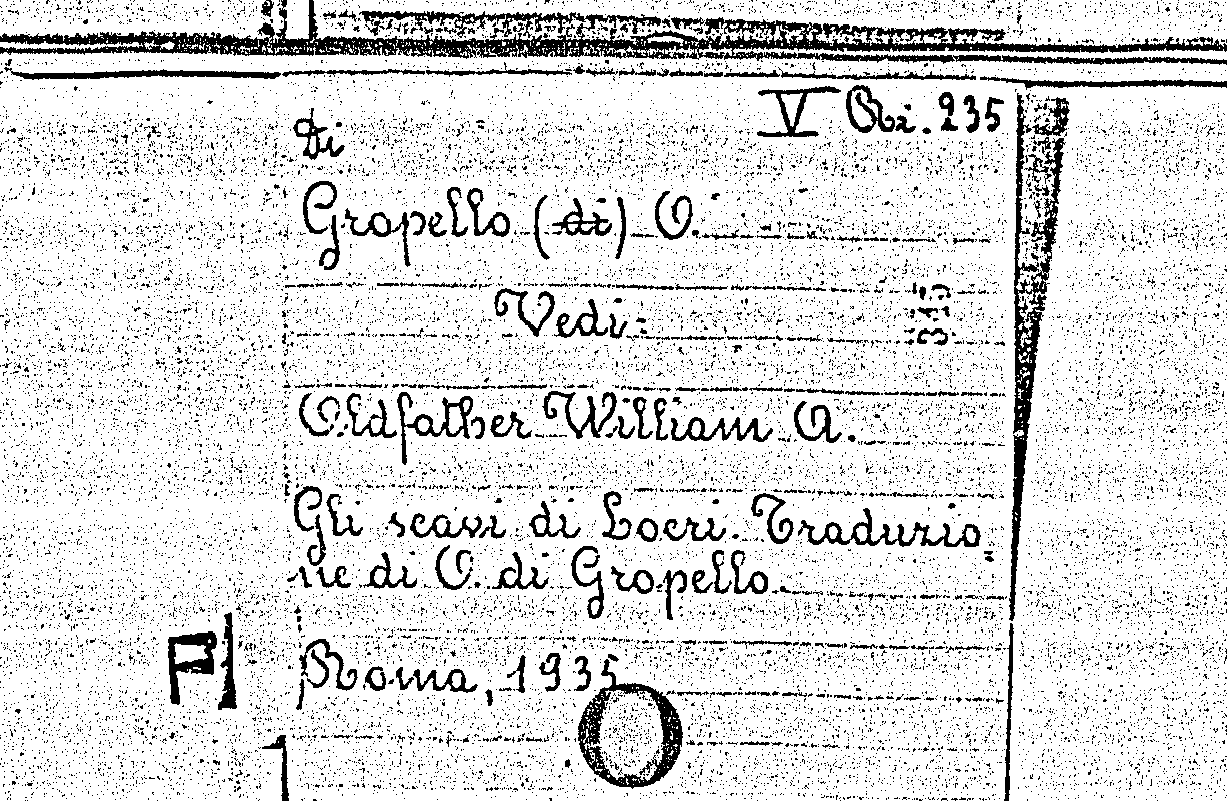 V Ri. 235
Di
Gropello (di) O.
Vedi:
315
Oldfather William A.
Gli scavi di Locri. Traduzio=
ne di O. di Gropello.
Roma, 1935